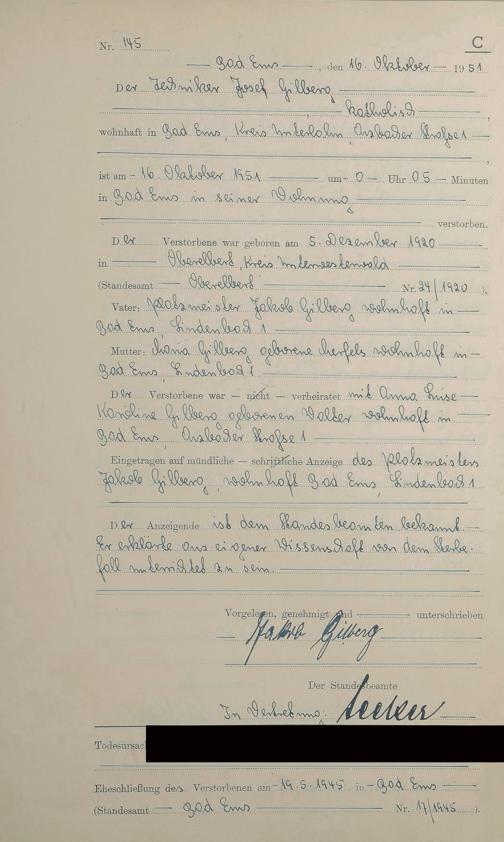 C
Nr. 145
Bad Ems, den 16. Oktober 1951
Der Techniker Josef Gilberg,
katholisch
wohnhaft in Bad Ems, Kreis Unterlahn, Arzbacher Straße 1
ist am 16. Oktober 1951 um 0 Uhr 05 Minuten
in Bad Ems in seiner Wohnung
verstorben.
Der Verstorbene war geboren am 5. Dezember 1920
in Oberelbert, Kreis Unterwesterwald
(Standesamt Oberelbert Nr. 24/1920 ).
Vater: Platzmeister Jakob Gilberg wohnhaft in
Bad Ems, Lindenbach 1
Mutter: Maria Gilberg geborene wohnhaft in
Bad Ems, Lindenbach 1
Der Verstorbene war — nicht — verheiratet mit Anna Luise
Karoline Gilberg geborenen Walter wohnhaft in
Bad Ems, Arzbacher Straße 1
Eingetragen auf mündliche — schriftliche Anzeige des Platzmeisters
Jakob Gilberg, wohnhaft Bad Ems, Lindenbach 1
Der Anzeigende ist dem Standesbeamten bekannt.
Er erklärte aus eigener Wissenschaft von dem Sterbe-
fall unterrichtet zu sein.
Vorgelesen, genehmigt und unterschrieben
Jakob Gilberg
Der Standesbeamte
In Vertretung:
Todesursac
Eheschließung des Verstorbenen am 19.5.1945 in Bad Ems
(Standesamt Bad Ems Nr. 17/1945 ).